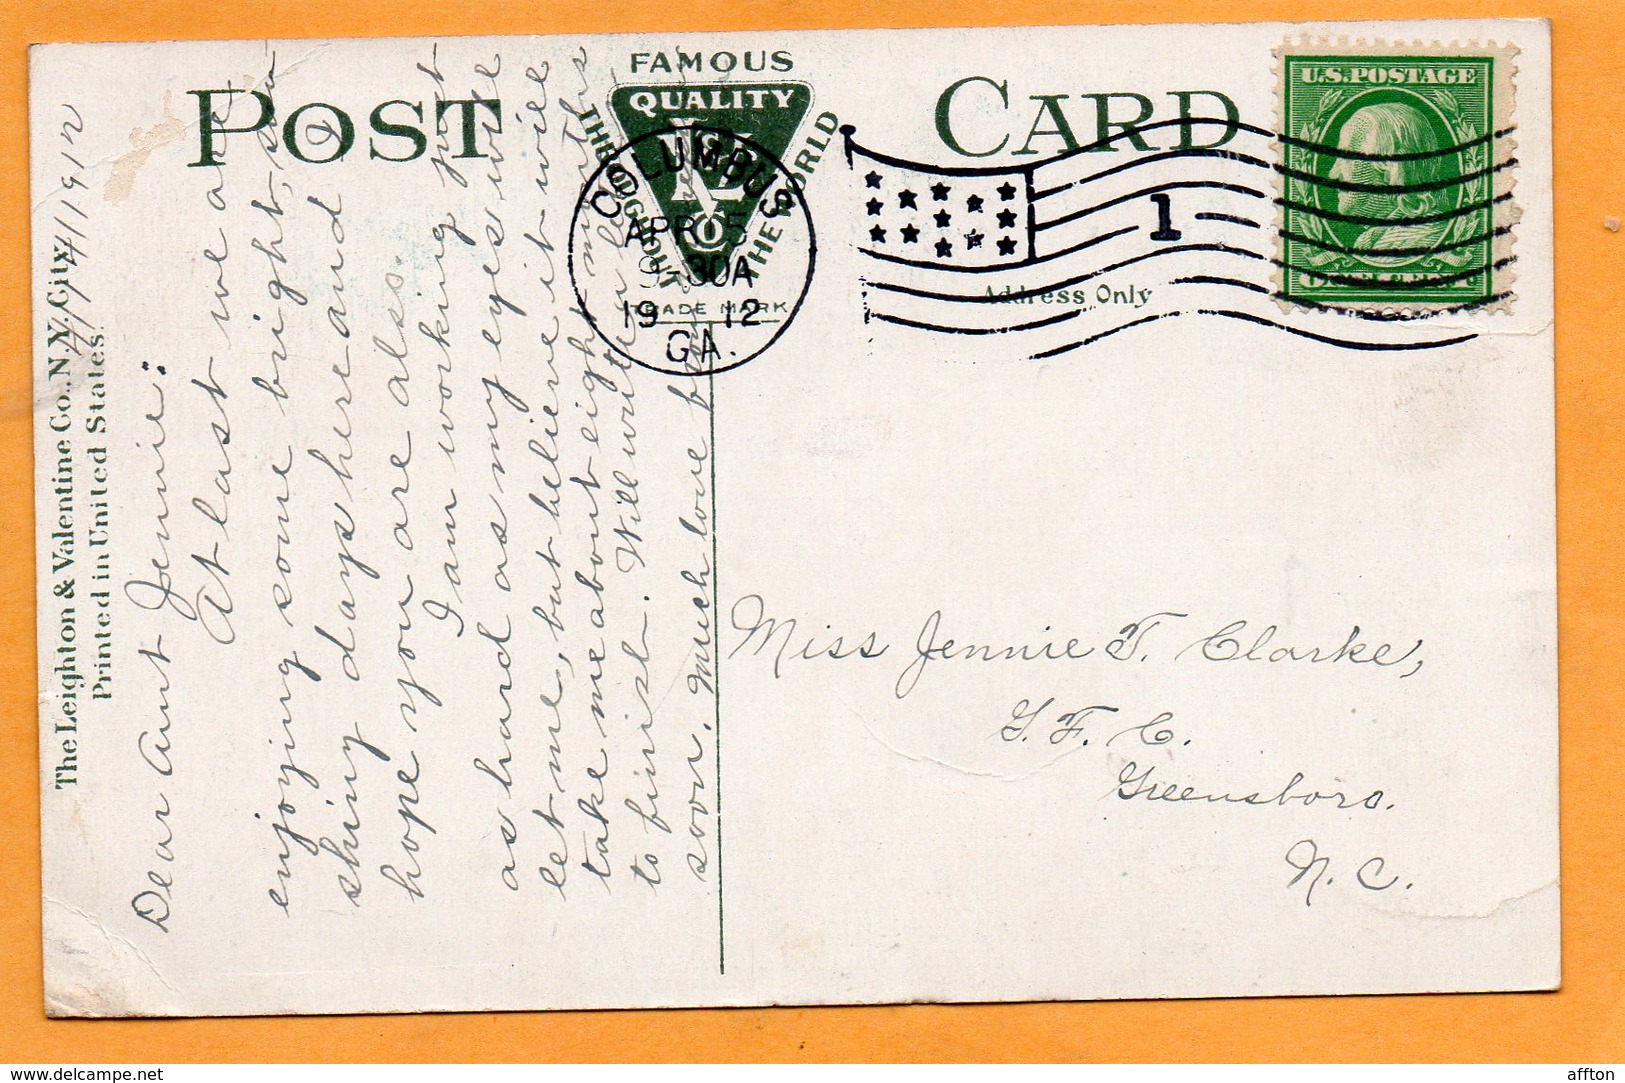 POST CARD
FAMOUS
QUALITY
THROUGHOUT THE WORLD
TRADE MARK
COLUMBUS
APR 5
9-30A
1912
GA.
1
U.S. POSTAGE
Address Only
The Leighton & Valentine Co., N.Y. City.
Printed in United States.
4/4/1912
Dear Aunt Jennie:
At last we are
enjoying some bright, sun
shiny days here and
hope you are also.
I am working just
as hard as my eyes will
let me, but believe it will
take me about eight months
to finish. Will write a letter
soon. Much love from
Miss Jennie T. Clarke,
G. F. C.
Greensboro.
N. C.
Delcampe.net
affton